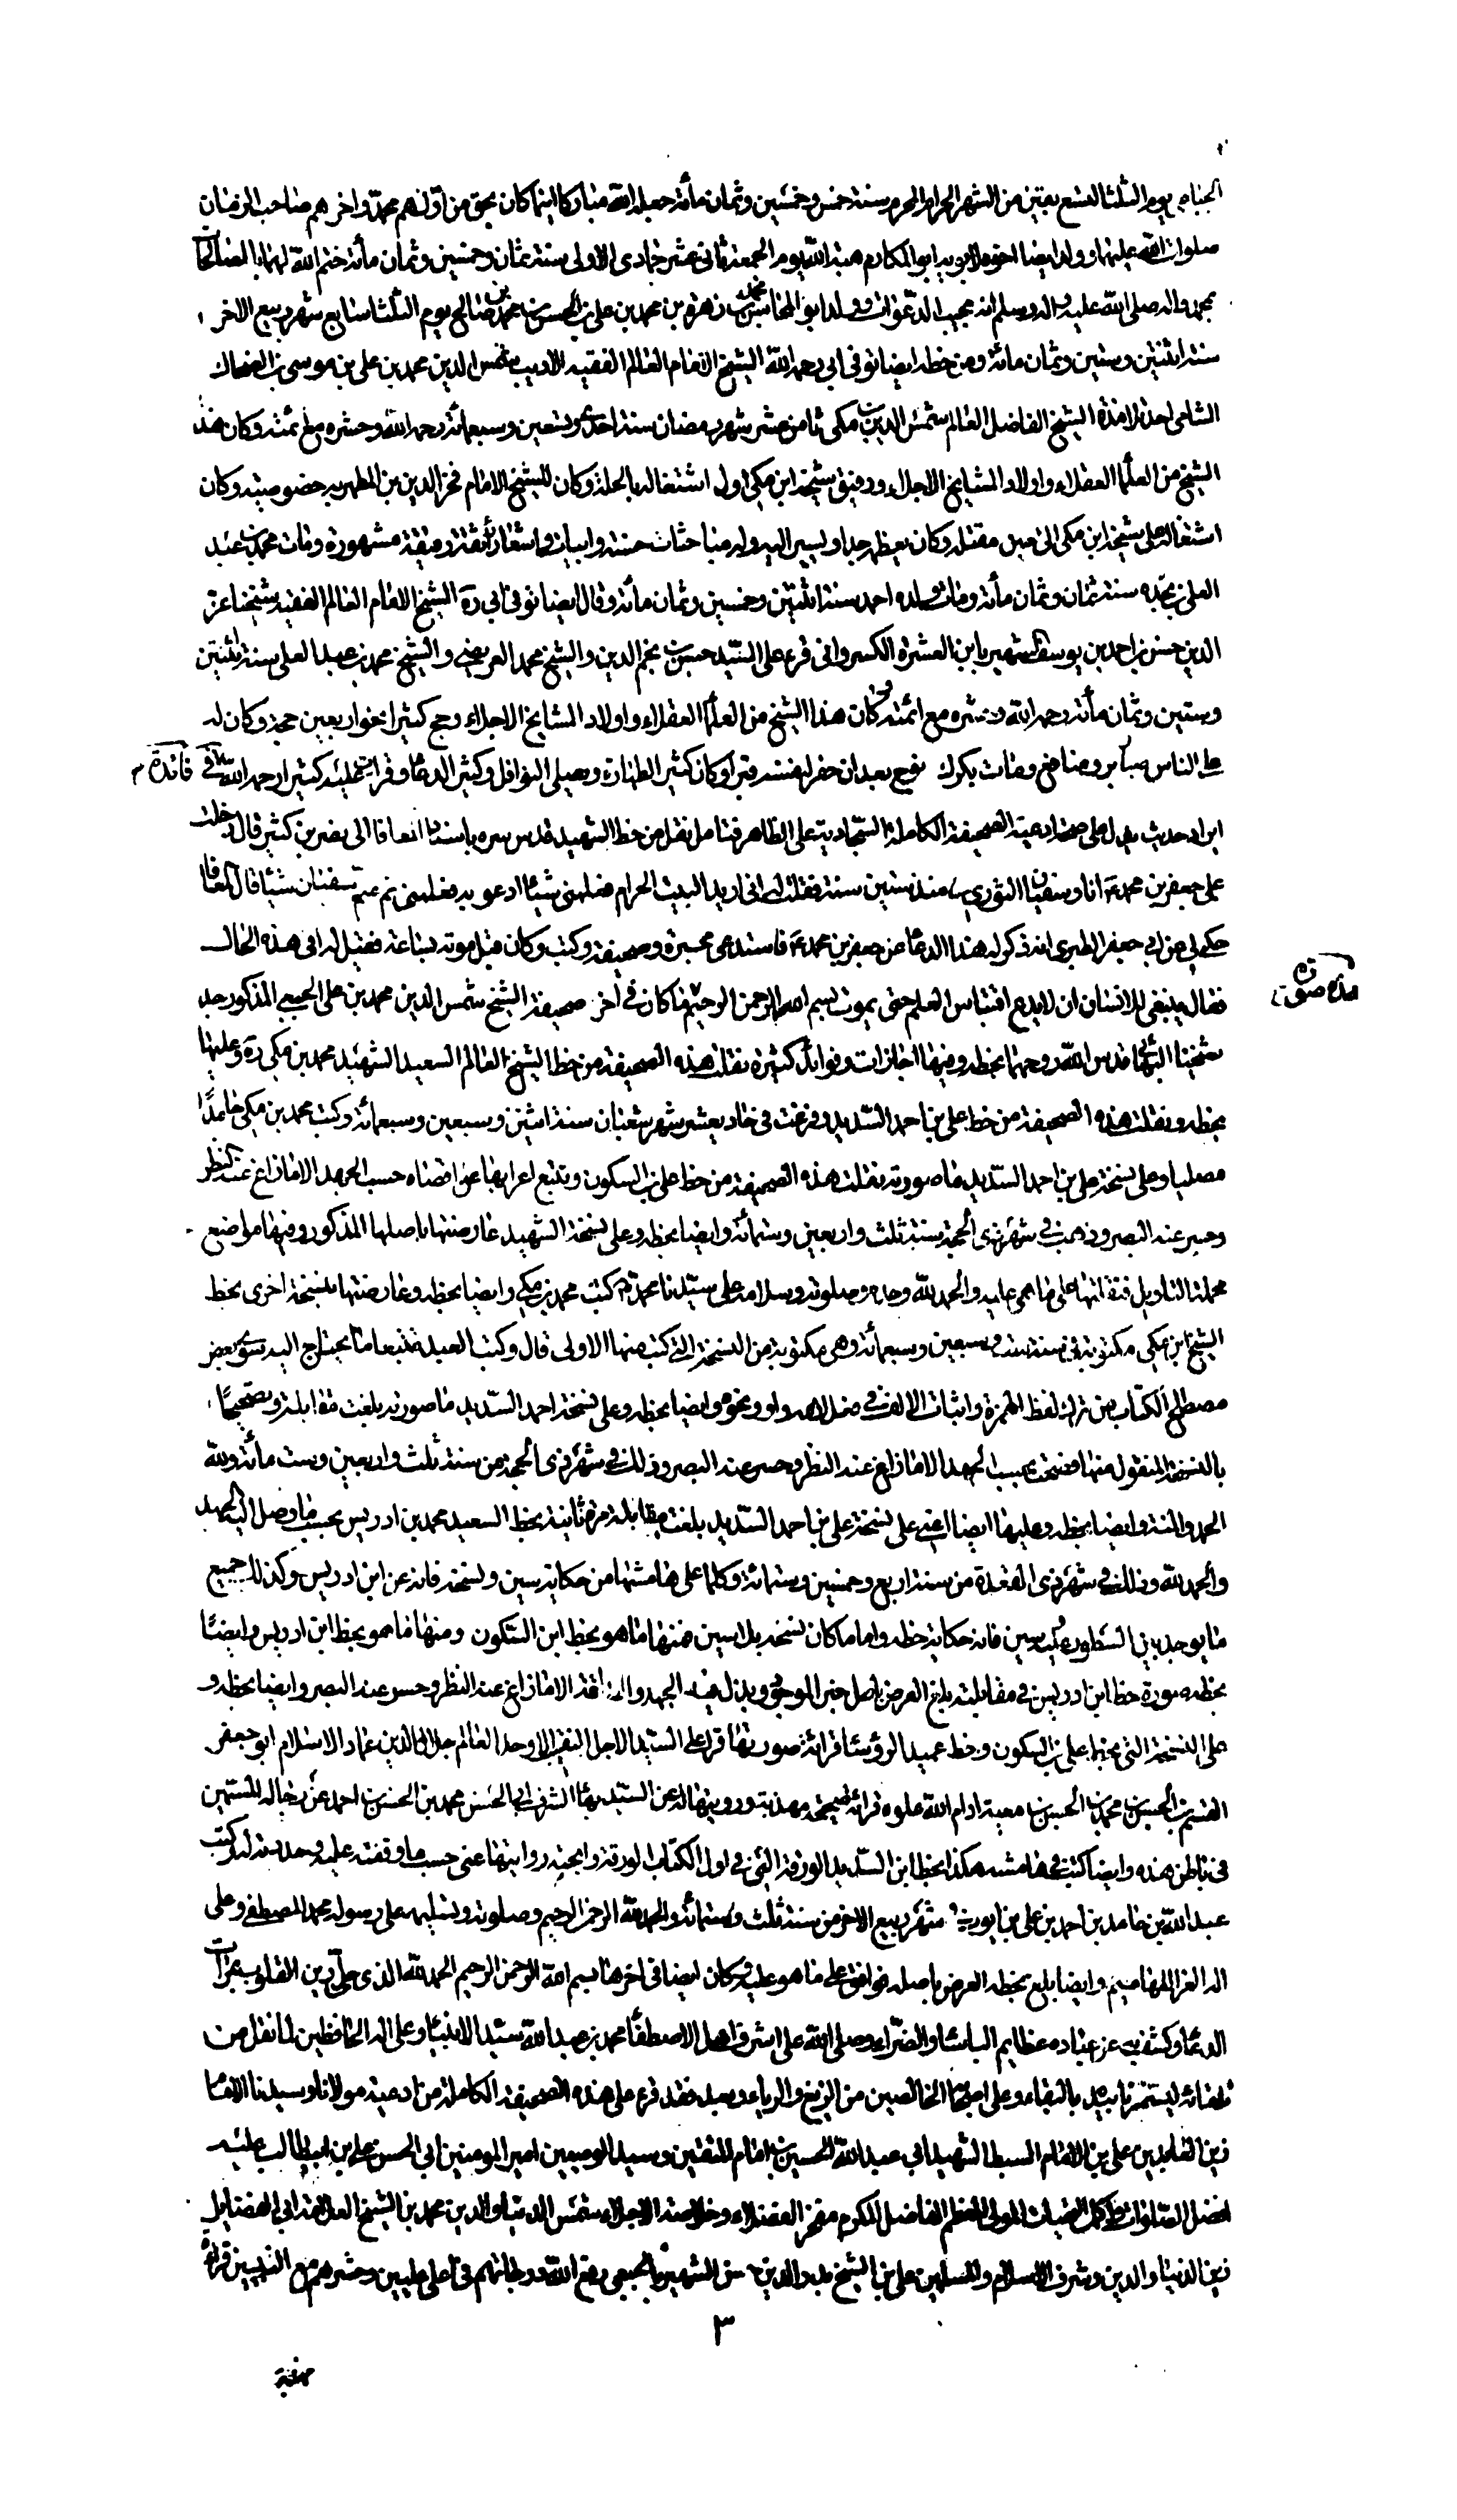 الجباه يوم الثلثا لتسع بقين من الشهر الحرام المحرم سنة خمس وخمسين وثمان مأة جعله الله مباركا اينما كان بحق من اولهم محمد واخرهم صاحب الزمان
صلوات الله عليهم وولد ايضا اخوه لابويه ابو المكارم هبة الله يوم الجمعة ثانى عشر جمادى الاولى سنة ثمان وخمسين وثمان مأة ختم الله لهما بالصالحات
بمحمد واله صلى الله عليه واله وسلم انه مجيب الدعوات وولد ابو المحاسن محمد بن زهرة بن محمد بن على بن الحسن بن محمد بن صالح يوم الثلثا سابع شهر ربيع الاخر
سنة اثنتين وستين وثمان مائة ومن خطه ايضا توفى ابى رحمه الله الشيخ الامام العالم الفقيه الاديب شمس الدين محمد بن على بن موسى بن الضحاك
الشامى احد تلامذة الشيخ الفاضل العالم شمس الدين بن مكى ثامن عشر شهر رمضان سنة احدى وتسعين وسبعمائة رحمه الله وحشره مع ائمته وكان هذا
الشيخ من العلما العقلاء واولاد المشايخ الاجلاء ورفيق شيخه ابن مكى اول اشتغاله بالحلة وكان للشيخ الامام فخر الدين بن المطهر به خصوصية وكان
اشتغاله على شيخه ابن مكى الى حين مقتله وكان يعظمه جدا ويسير اليه وله مباحثات حسنة وابيات واشعار رائقة رقيقة مشهورة ومات محمد بن عبد
العلى بن نجده سنة ثمان وثمان مأة ومات ولده احمد سنة اثنتين وخمسين وثمان مأة وقال ايضا توفى ابى ره الشيخ الامام العالم الفقيه شيخنا عز
الدين حسن بن احمد بن يوسف الشهير بابن العشرة الكسروانى قرء على السيد حسن بن نجم الدين والشيخ محمد العريضى والشيخ محمد بن عبد العلى سنة اثنتين
وستين وثمان مأة رحمه الله وحشره مع ائمته وكان هذا الشيخ من العلما العقلاء واولاد المشايخ الاجلاء وحج كثيرا نحوا ربعين حجة وكان له
على الناس مبار ومنافع ومات بكرك نوح بعد ان حفر لنفسه قبرا وكان كثير الطهارة ويصلى النوافل وكثير الدعا وقرات عليه كثيرا رحمه الله
فائدة فى
ايراد حديث يدل على صحة ادعية الصحيفة الكاملة السجادية على الظاهر فتامل نقل من خط الشهيد قدس سره باسناد المعافا الى نصر بن كثير قال دخلت
على جعفر بن محمد ع انا وسفيان الثورى منذ ستين سنة فقلت له انى اريد البيت الحرام فعلمنى شيئا ادعو به فعلمنى ثم علم سفيان شيئا قال المعافا
حكى لى عن ابى جعفر الطبرى انه ذكر له هذا الدعا عن جعفر بن محمد ع فاستدعى محبرة وصحيفة وكتب وكان قبل موته بساعة فقيل له افى هذه الحال
فقال ينبغى للانسان ان لا يدع اقتباس العلم حتى يموت بسم الله الرحمن الرحيم ما كان فى آخر صحيفة الشيخ شمس الدين محمد بن على الجبعى المذكور جد
هذه صورة
شيخنا البهائى قدس الله روحهما بخطه وفيها اجازات وفوائد كثيرة نقلت هذه الصحيفة من خط الشيخ العالم السعيد الشهيد محمد بن مكى ره وعليها
بخطه ونقلت هذه الصحيفة من خط على بن احمد السديد وفرغت فى حاديعشر شهر شعبان سنة اثنتين وسبعين وسبعمائة وكتب محمد بن مكى حامدا
مصليا وعلى نسخة على بن احمد السديد ما صورته نقلت هذه الصحيفة من خط على بن السكون وتتبع اعرابها عن اقصاه حسب الجهد الا ما زاغ عنه النظر
وحسر عنه البصر وذهب فى شهر ذى الحجة سنة ثلث واربعين وستمائة وايضا بخطه وعلى نسخة الشهيد عارضتها باصلها المذكور وفيها مواضع
محملة التاويل فنقلتها على ما هى عليه والحمد لله وحده وصلوته وسلامه على سيدنا محمد واله كتب محمد بن مكى وايضا بخطه وعارضتها بنسخة اخرى بخط
الشيخ ابن مكى مكتوبة فى سنة ست وسبعين وسبعمائة وهى مكتوبة من النسخة التى كتب منها الاولى قال وكتب العبد متبعا ما يحتاج اليه سوى بعض
مصطلح الكتاب من ترك لفظ الهمزة واثبات الالف فى مثل الاهه واو ونحوه وايضا بخطه وعلى نسخة احمد السديد ما صورته بلغت مقابلة وتصحيحا
بالنسخة المنقول منها فصحت بحسب الجهد الا ما زاغ عنه النظر وحسر عنه البصر وذلك فى شهر ذى الحجة من سنة ثلث واربعين وست مائة ولله
الحمد والمنة وايضا بخطه وعليها ايضا اعنى على نسخة على بن احمد السديد بلغت مقابلة مرة ثانية بخط السعيد محمد بن ادريس بحسب ما وصل اليه الجهد
والحمد لله وذلك فى شهر ذى القعدة من سنة اربع وخمسين وستمائة وكلما على هامشها من حكاية سين ونسخة فانه عن ابن ادريس وكذلك جميع
ما يوجد بين السطور وعليه سين فانه حكاية خطه واما ما كان نسخة بلا سين فمنها ما هو بخط ابن السكون ومنها ما هو بخط ابن ادريس وايضا
بخطه صورة خط ابن ادريس فى مقابلته بلغ العرض باصل خبر الموجود وبذل فيه الجهد والطاقة الا ما زاغ عنه النظر وحسر عنه البصر وايضا بخطه و
على النسخة التى بخط على بن السكون وخط عميد الرؤسا قرائة صورتها قرا على السيد الاجل النقيب الاوحد العالم جلال الدين عماد الاسلام ابو جعفر
القسم بن الحسن بن محمد بن الحسن بن معية ادام الله علوه قرائة صحيحة مهذبة ورويتها له عن السيد بهاء الشرف ابى الحسن محمد بن الحسن بن احمد عن رجاله المسمين
فى باطن هذه وايضا كتب فى هامشه هكذا بخط ابن السديد الورقة التى فى اول الكتاب الورقة وابحته روايتها عنى حسب ما وقفته عليه وحددته له وكتب
عبد الله بن حامد بن احمد بن على بن ايوب شهر ربيع الاخر من سنة ثلث وستمائة والحمد لله الرحمن الرحيم وصلوته وتسليمه على رسوله محمد المصطفى وعلى
اله الغر اللهاميم وايضا بلغ بخطه العرض باصله فوافق على ما هو عليه وكان ايضا فى اخرها بسم الله الرحمن الرحيم الحمد لله الذى جلى رين القلوب بمرات
الدعا وكشف به عن عباده عظايم الباساء والضراء وصلى الله على اشرف اهل الاصطفا محمد بن عبد الله سيد الانبيا وعلى اله الحافظين لما نقل من
بالبقاء وعلى اصحابه الخالصين من الزيغ والرياء وبعد فقد قرء على هذه الصحيفة الكاملة من ادعية مولانا وسيدنا الامام
زين العابدين على بن الامام السبط الشهيد ابى عبد الله الحسين بن امام المتقين وسيد الوصيين امير المومنين ابى الحسن على بن ابيطالب عليه
افضل الصلوات واكمل التحيات المولى المعظم الفاضل المكرم مفخر الفضلاء وخلاصة الاجلاء شمس الدنيا والدين محمد بن الشيخ العلامة ابى الفضايل
زين الدنيا والدين وشرف الاسلام والمسلمين على بن الشيخ بدر الدين حسن الشهير بالجبعى رفع الله درجاتهم فى اعلى عليين وحشرهم مع النبيين قراءة
٣